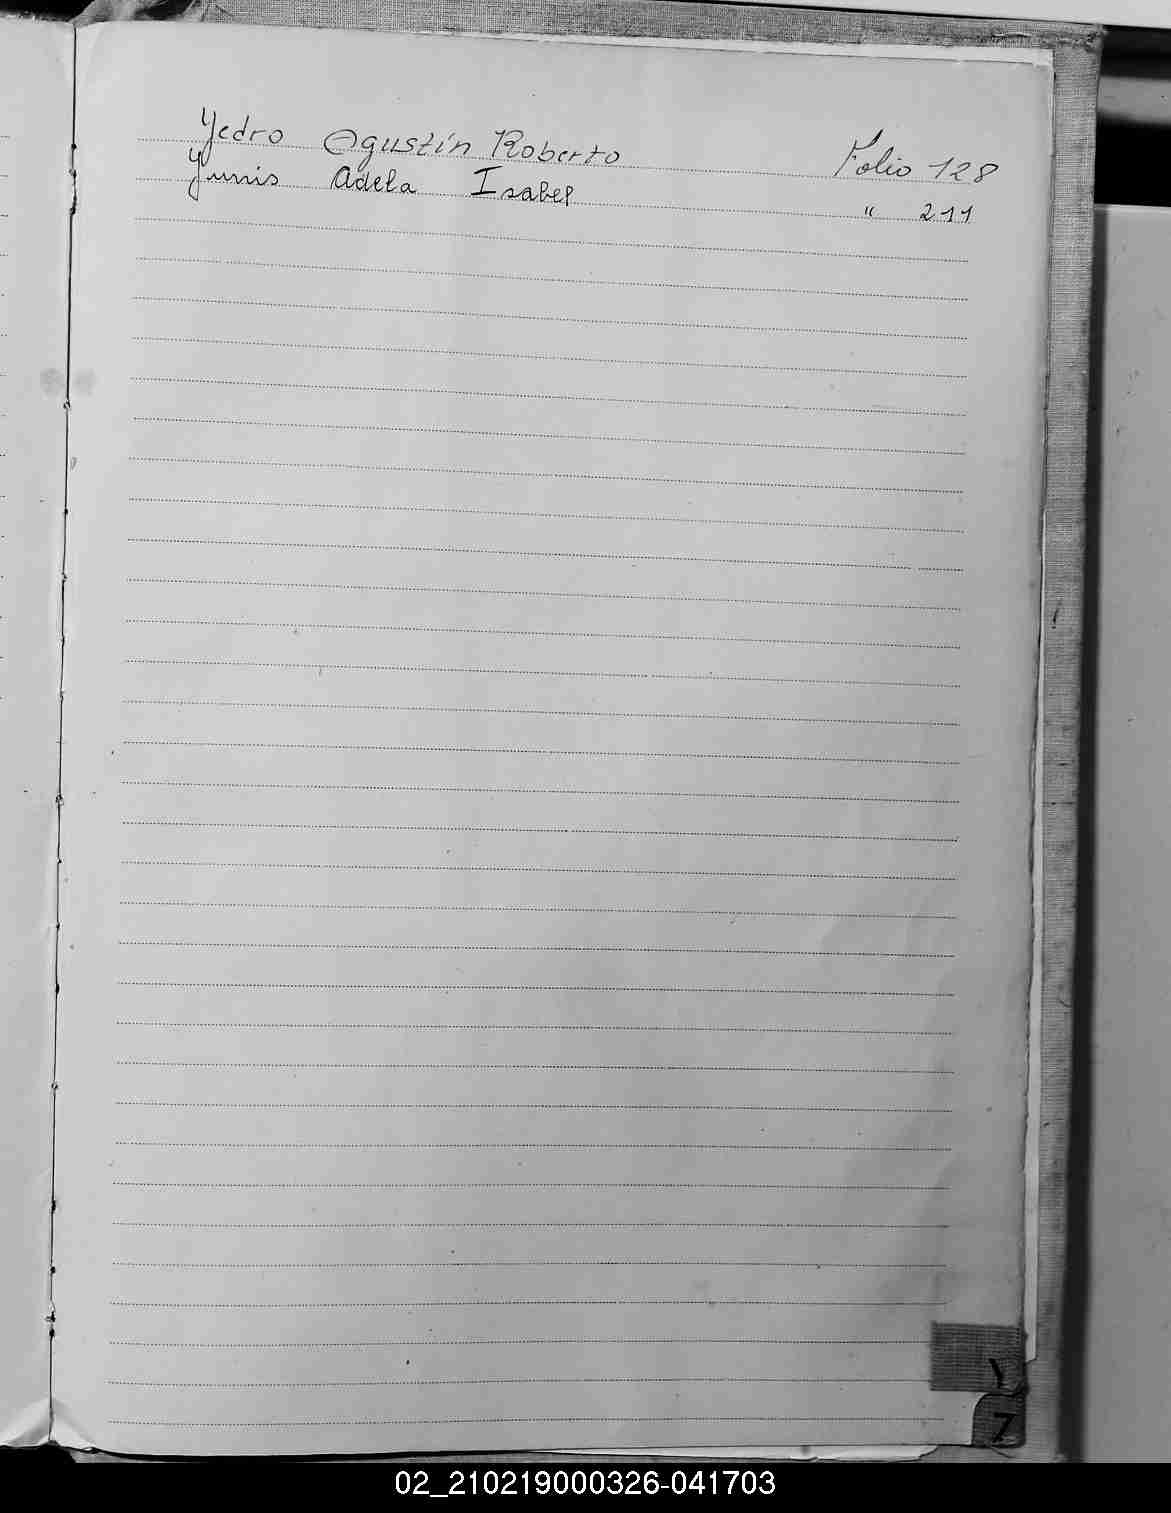 Yedro Agustín Roberto Folio 128
Yunis Adela Isabel " 211
Y
Z
02_210219000326-041703